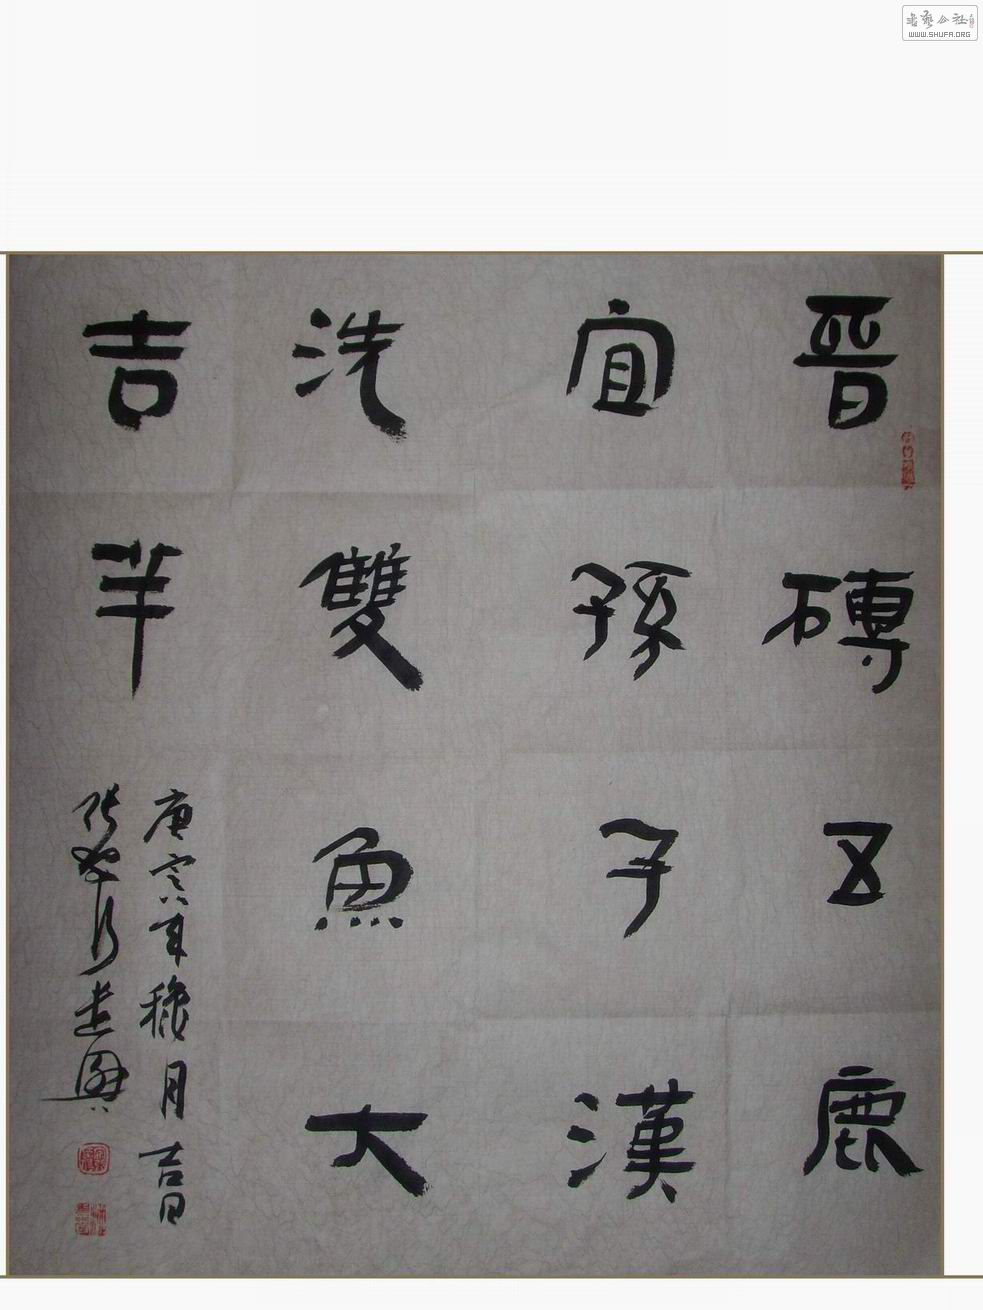 晋磚五鹿
宜孫子漢
洗雙魚大
吉羊
庚寅年穐月吉日
張
書藝公社
WWW.SHUFA.ORG